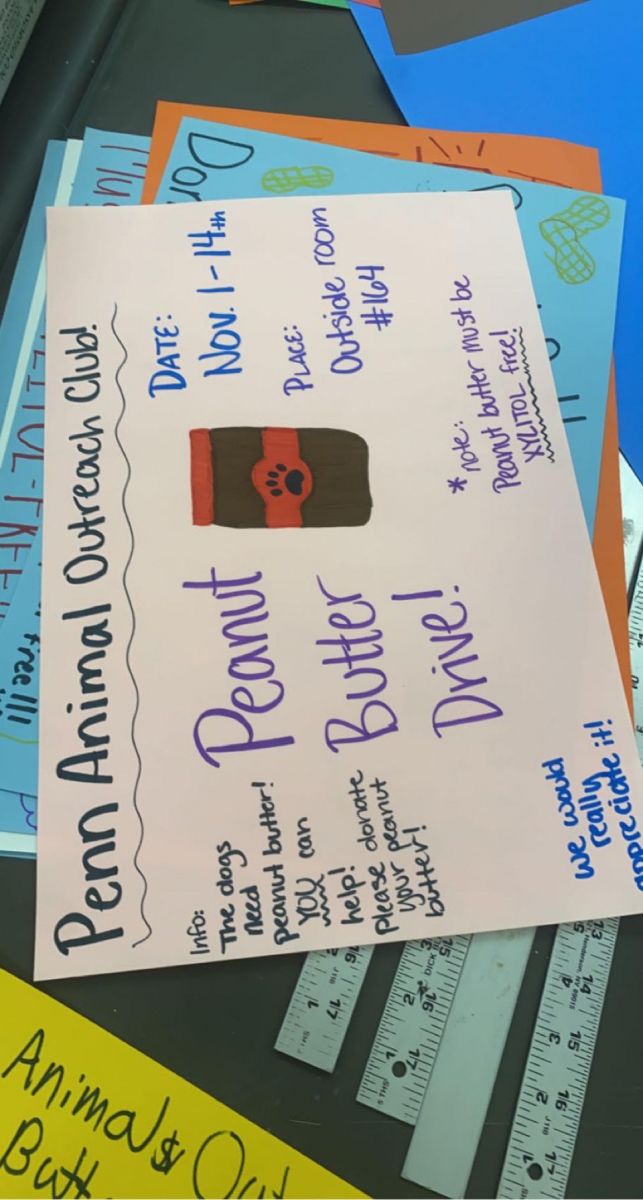 Penn Animal Outreach Club!
Info:
The dogs
need
peanut butter!
YOU can
help!
Please donate
your peanut
butter!
Peanut
Butter
Drive!
DATE:
Nov. 1-14th
PLACE:
Outside room
#164
*note:
Peanut butter must be
XYLITOL free!
we would
really
appreciate it!
free!!!
Animals Out
Butt